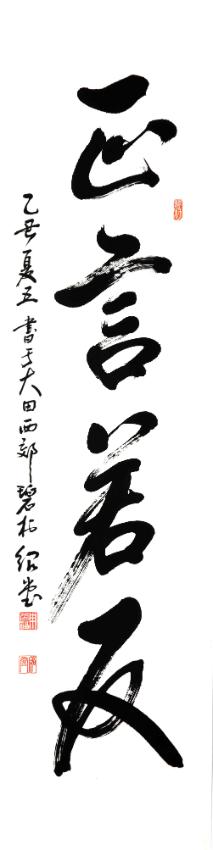 正言若反
乙丑夏五書于大田西部碧 紹堂